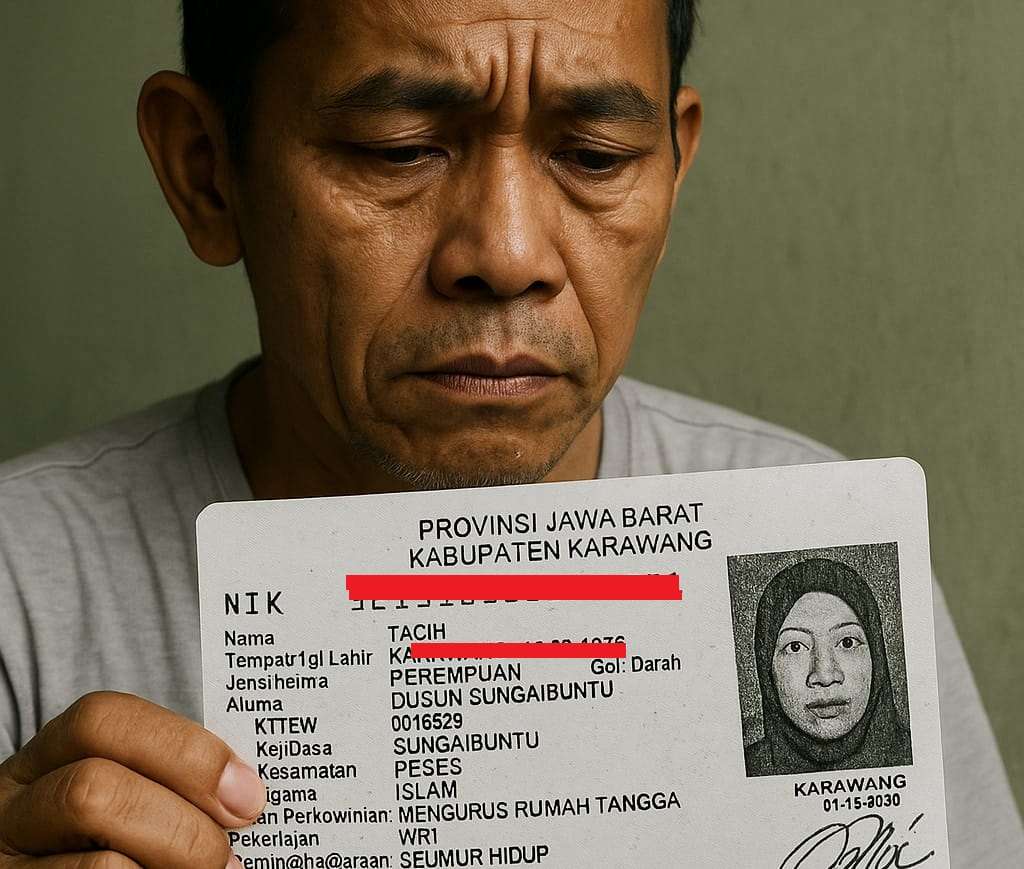 PROVINSI JAWA BARAT
KABUPATEN KARAWANG
NIK
Nama TACIH
Tempatr1gl Lahir
Jensiheima PEREMPUAN Gol: Darah
Aluma DUSUN SUNGAIBUNTU
KTTEW 0016529
KejiDasa SUNGAIBUNTU
Kesamatan PESES
igama ISLAM
an Perkowinian: MENGURUS RUMAH TANGGA
Pekerlajan WR1
emin@ha@araan: SEUMUR HIDUP
KARAWANG
01-15-2030